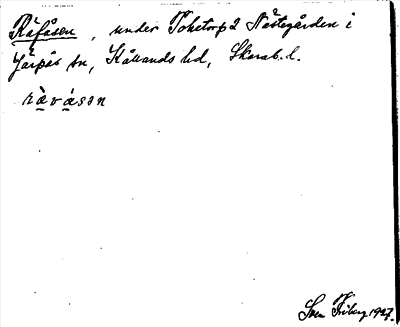 Räfåsen, under Toketorp 2 Nästegården i
Järpås sn, Kållands hd, Skarab. l.
rävåsen
Sven Friberg 1927.